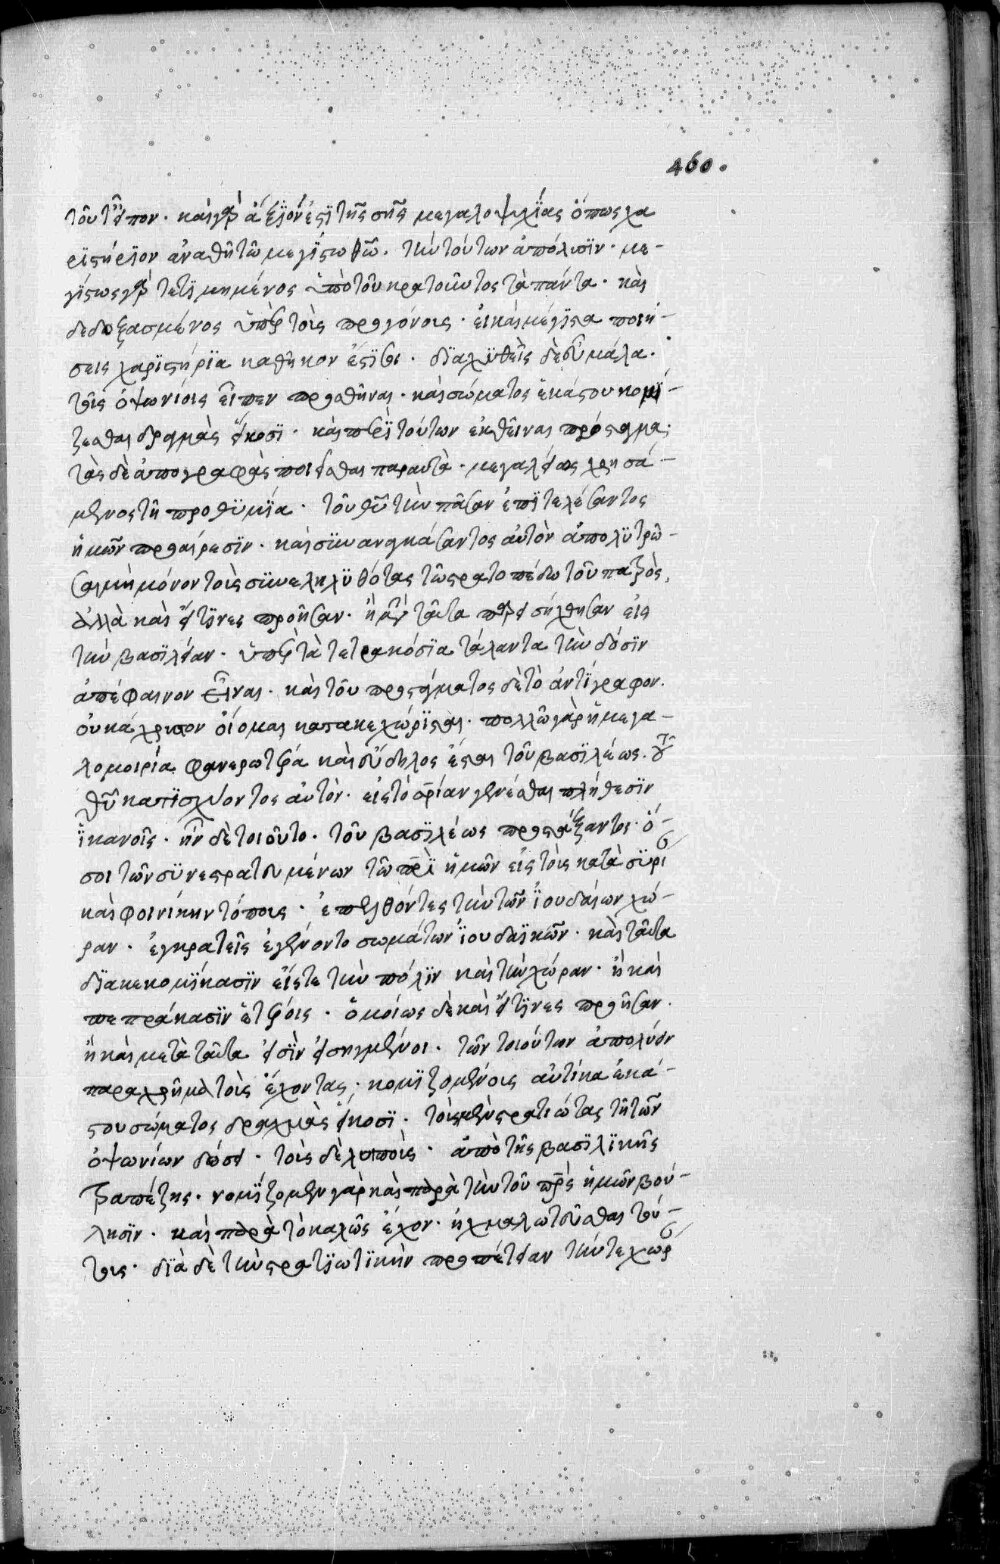 460.
τοῦτον τρόπον· καὶ γὰρ ἄξιόν ἐστι τῆς σῆς μεγαλοψυχίας ὅπως χα
ριστήριον ἀναθῇ τῷ μεγίστῳ θεῷ. τὴν τούτων ἀπόλυσιν· με-
γίστως γὰρ τετιμημένος ὑπὸ τοῦ κρατοῦντος τὰ πάντα· καὶ
δεδοξασμένος ὑπὲρ τοὺς προγόνους· εἰ καὶ μέγιστα ποιή-
σεις χαριστήρια καθῆκον ἐστί σοι. διαχυθεὶς δὲ εὖ μάλα.
τοῖς ὀψωνίοις εἶπεν προσθῆναι· καὶ σώματος ἑκάστου κομί-
ζεσθαι δραχμὰς εἴκοσι· καὶ περὶ τούτων ἐκθεῖναι πρόσταγμα·
τὰς δὲ ἀπογραφὰς ποιεῖσθαι παραυτὰ· μεγαλείως χρησά-
μενος τῇ προθυμία· τοῦ θεοῦ τὴν πᾶσαν ἐπιτελέσαντος
ἡμῶν προαίρεσιν· καὶ συναναγκάσαντος αὐτὸν ἀπολυτρῶ-
σαι μὴ μόνον τοὺς συνεληλυθότας τῷ στρατοπέδῳ τοῦ πατρὸς,
ἀλλὰ καὶ εἴ τινες προῆσαν· ἢ μετὰ ταῦτα παρεισήχθησαν εἰς
τὴν βασιλείαν· ὑπὲρ τὰ τετρακόσια τάλαντα τὴν δόσιν
ἀπέφαινον εἶναι· καὶ τοῦ προστάγματος δὲ τὸ ἀντίγραφον.
οὐκ ἄχρηστον οἴομαι κατακεχωρίσθαι· πολλῷ γὰρ ἡ μεγα-
λομοιρία φανερωτέρα καὶ εὔδηλος ἔσται τοῦ βασιλέως. τοῦ
θεοῦ κατισχύοντος αὐτόν· εἰς τὸ σωτηρίαν γενέσθαι πλήθεσιν
ἱκανοῖς· ἦν δὲ τοιοῦτο· τοῦ βασιλέως προστάξαντος· ὅ-
σοι τῶν συνεστρατευμένων τῷ πατρὶ ἡμῶν εἰς τοὺς κατὰ συρίαν
καὶ φοινίκην τόπους· ἐπελθόντες τὴν τῶν ἰουδαίων χώ-
ραν· ἐγκρατεῖς ἐγένοντο σωμάτων ἰουδαϊκῶν· καὶ ταῦτα
διακεκομίκασιν εἴς τε τὴν πόλιν καὶ τὴν χώραν· ἢ καὶ
πεπράκασιν ἑτέροις· ὁμοίως δὲ καὶ εἴ τινες προῆσαν·
ἢ καὶ μετὰ ταῦτα εἰσὶν εἰσηγμένοι· τῶν τοιούτων ἀπολύειν
παραχρῆμα τοὺς ἔχοντας, κομιζομένους αὐτίκα ἑκά-
στου σώματος δραχμὰς εἴκοσι· τοὺς μὲν στρατιώτας τῇ τῶν
ὀψωνίων δόσει· τοὺς δὲ λοιποὺς· ἀπὸ τῆς βασιλικῆς
τραπέζης· νομίζομεν γὰρ καὶ παρὰ τὴν τοῦ πατρὸς ἡμῶν βού-
λησιν· καὶ παρὰ τὸ καλῶς ἔχον· ᾐχμαλωτεῦσθαι τού-
τους· διὰ δὲ τὴν στρατιωτικὴν προπέτειαν τήν τε χώραν